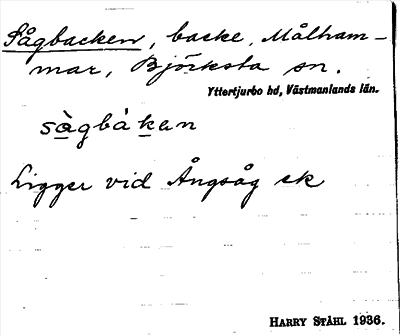 Sågbacken, backe, Målham-
mar, Björksta sn.
Yttertjurbo hd, Västmanlands län.
sàgbáken
Ligger vid Ångsåg
HARRY STÅHL 1936.